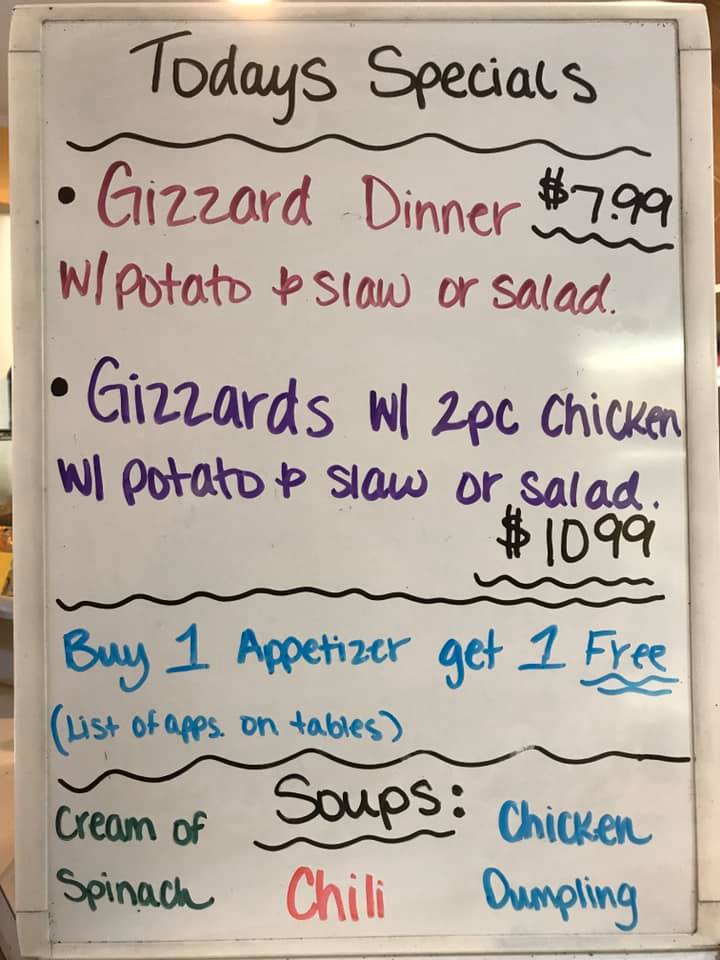 Todays Specials
• Gizzard Dinner $7.99
w/potato & slaw or salad.
• Gizzards w/ 2pc Chicken
w/ potato & slaw or salad.
$1099
Buy 1 Appetizer get 1 Free
(List of apps. on tables)
Soups:
Cream of
Spinach
Chili
Chicken
Dumpling